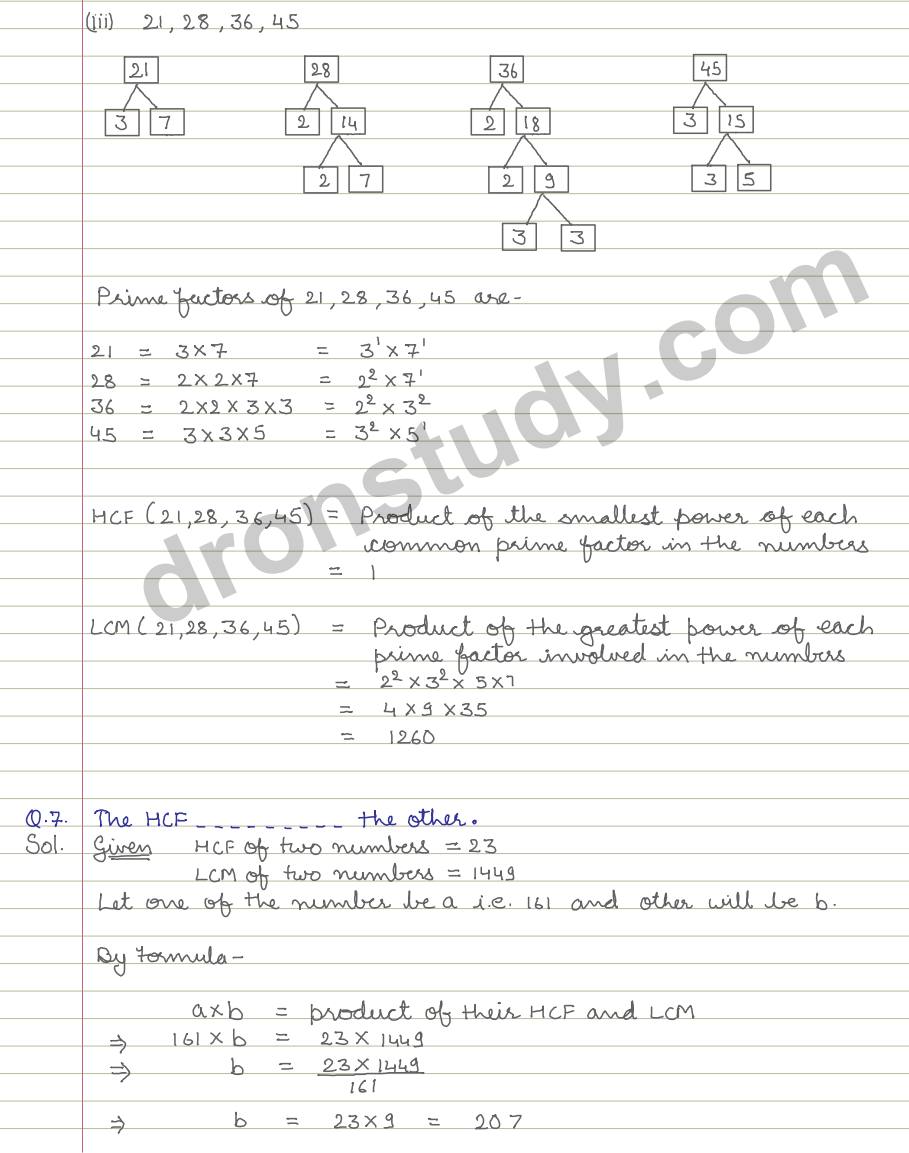 (iii) 21, 28, 36, 45
21 28 36 45
3 7 2 14 2 18 3 15
2 7 2 9 3 5
3 3
Prime factors of 21, 28, 36, 45 are-
21 = 3×7 = 3¹×7¹
28 = 2×2×7 = 2²×7¹
36 = 2×2×3×3 = 2²×3²
45 = 3×3×5 = 3²×5¹
HCF (21,28,36,45) = Product of the smallest power of each
common prime factor in the numbers
= 1
LCM (21,28,36,45) = Product of the greatest power of each
prime factor involved in the numbers
= 2²×3²×5×7
= 4×9×35
= 1260
Q.7. The HCF --------- the other.
Sol. Given HCF of two numbers = 23
LCM of two numbers = 1449
Let one of the number be a i.e. 161 and other will be b.
By Formula-
a×b = product of their HCF and LCM
⇒ 161×b = 23×1449
⇒ b = 23×1449
161
⇒ b = 23×9 = 207
dronstudy.com